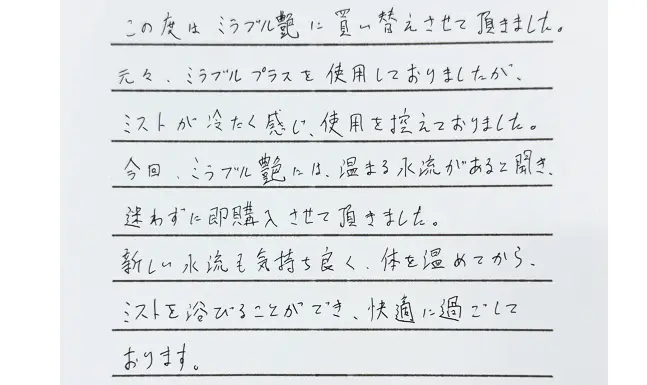 この度は ミラブル艶に買い替えさせて頂きました。
元々、ミラブルプラスを使用しておりましたが、
ミストが冷たく感じ、使用を控えておりました。
今回、ミラブル艶には、温まる水流があると聞き、
迷わずに即購入させて頂きました。
新しい水流も気持ち良く、体を温めてから、
ミストを浴びることができ、快適に過ごして
おります。